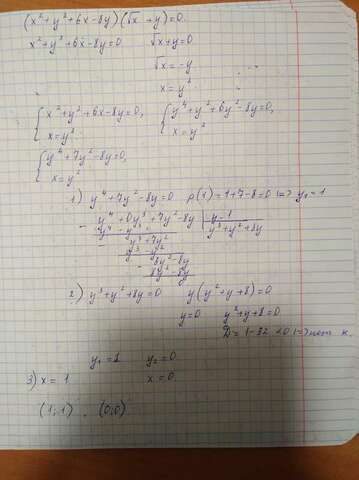 (x² + y² + 6x - 8y)(√x + y) = 0.
x² + y² + 6x - 8y = 0 √x + y = 0
√x = -y
x = y²
{ x² + y² + 6x - 8y = 0, { y⁴ + y² + 6y² - 8y = 0,
x = y² x = y²
{ y⁴ + 7y² - 8y = 0,
x = y²
1) y⁴ + 7y² - 8y = 0 p(1) = 1 + 7 - 8 = 0 => y₁ = 1
- y⁴ + 0y³ + 7y² - 8y | y - 1
y⁴ - y³ y³ + y² + 8y
- y³ + 7y²
y³ - y²
- 8y² - 8y
8y² - 8y
2) y³ + y² + 8y = 0 y(y² + y + 8) = 0
y = 0 y² + y + 8 = 0
D = 1 - 32 < 0 => нет к.
y₁ = 1 y₂ = 0
3) x = 1 x = 0
(1; 1) (0; 0)